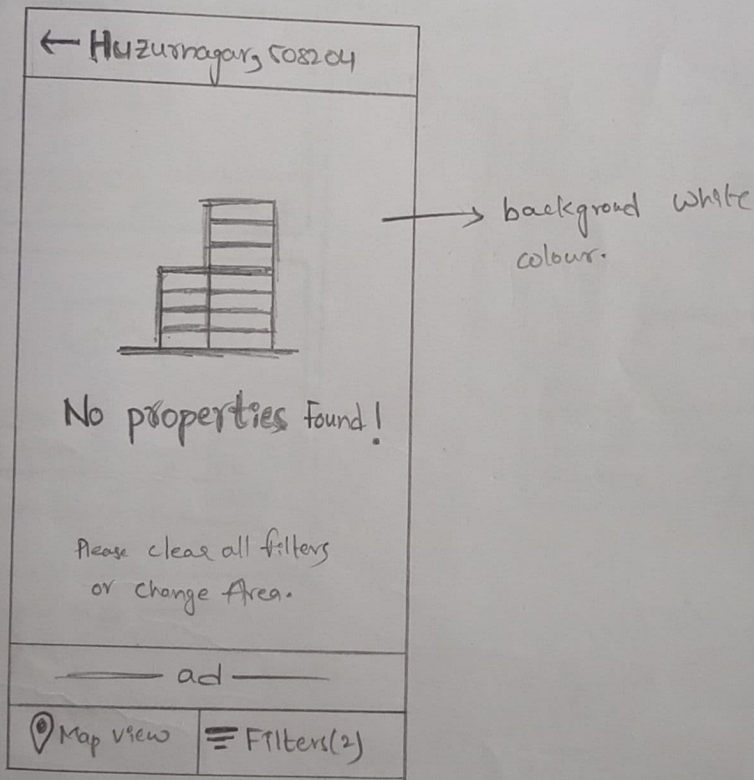 ← Huzurnagar, 508204
backgroud white
colour.
No properties found!
Please clear all filters
or change Area.
ad
Map view
Filters(2)